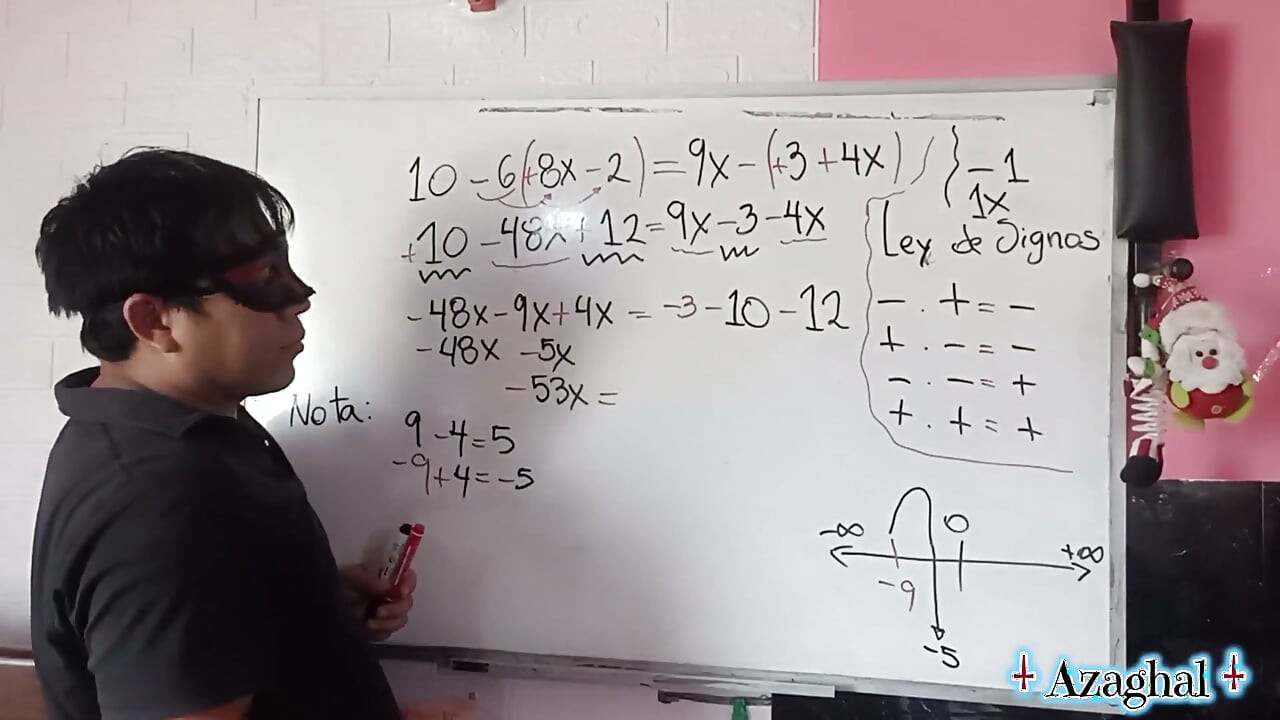 10 - 6(+8x - 2) = 9x - (+3 + 4x)
-1
1x
+10 - 48x + 12 = 9x - 3 - 4x
-48x - 9x + 4x = -3 - 10 - 12
-48x -5x
-53x =
Nota:
9 - 4 = 5
-9 + 4 = -5
Ley de Signos
- . + = -
+ . - = -
- . - = +
+ . + = +
-∞ 0 +∞
-9
-5
Azaghal